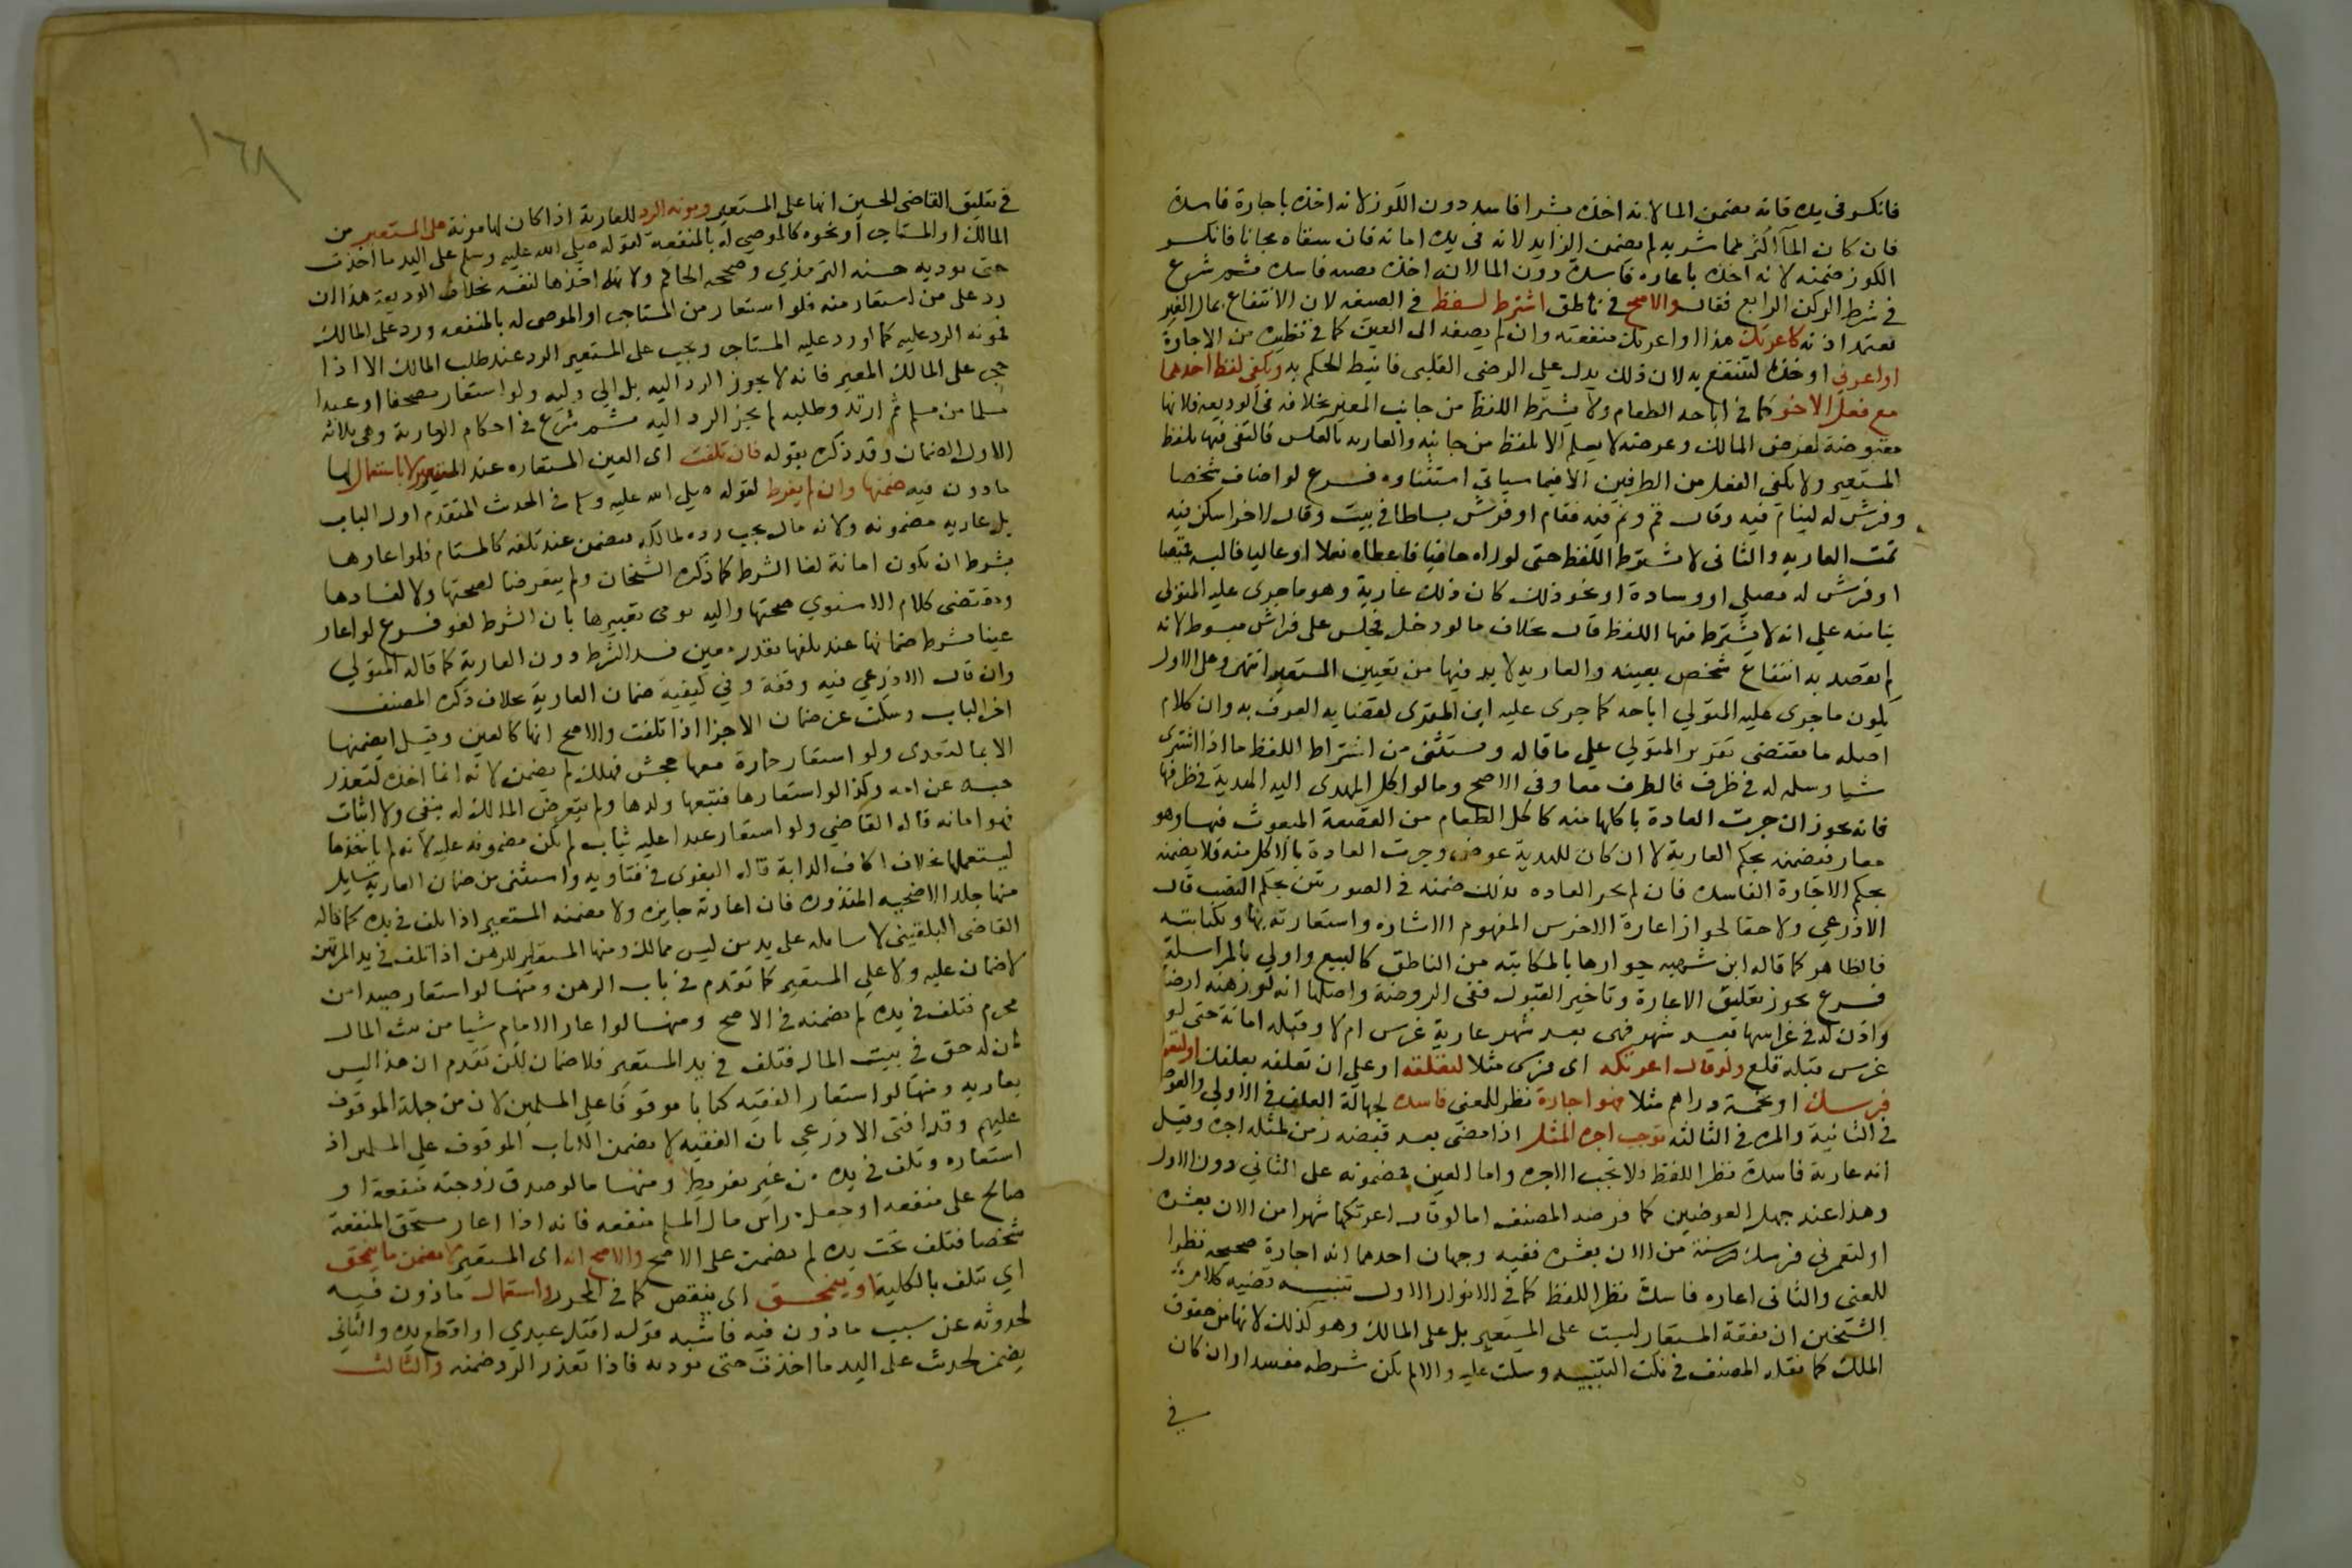 فانكسر في يده فانه يضمن الما لانه اخذه بشرا فاسد دون الكوز لانه اخذه باجارة فاسدة
فان كان الماء اكثر مما شربه لم يضمن الزايد لانه في يده امانه فان سقاه مجانا فانكسر
الكوز ضمنه لانه اخذه باعاره فاسدة دون الما لانه اخذه بهبه فاسدة ثم شرع
في شرط الركن الرابع فقال والاصح في ناطق اشترط لفظ في الصيغه لان الانتفاع بمال الغير
يعتمد اذنه كاعرتك هذا او اعرتك منفعته وان لم يضفه الى العين كما في نظيره من الاجارة
او اعرني او خذه لتنتفع به لان ذلك يدل على الرضى القلبي فانيط الحكم به ويكفي لفظ احدهما
مع فعل الاخر كما في اباحه الطعام ولا يشترط اللفظ من جانب المعير بخلافه في الوديعه فلانها
مقبوضة لغرض المالك وغرضه لا يعلم الا بلفظ من جانبه والعاريه بالعكس فاكتفى فيها بلفظ
المستعير ولا يكفي الفعل من الطرفين الا فيما سياتي استثناوه فرع لو اضاف شخصا
وفرش له لينام فيه وقال قم ونم فيه فقام او فرش بساطا في بيت وقال لاخر اسكن فيه
تمت العاريه والثاني لا يشترط اللفظ حتى لو راه حافيا فاعطاه نعلا او عاليا فالبسه قميصا
او فرش له مصلى او وسادة او نحو ذلك كان ذلك عارية وهو ما جرى عليه المتولى
بنا منه على انه لا يشترط فيها اللفظ قال بخلاف ما لو دخل فجلس على فراش مبسوط لانه
لم يقصد به انتفاع شخص بعينه والعاريه لا بد فيها من تعيين المستعير انتهى وعلى الاول
يكون ما جرى عليه المتولي اباحه كما جرى عليه ابن المقري لقضا به العرف به وان كلام
اصله ما يقتضى تقرير المتولي على ما قاله ويستثنى من اشتراط اللفظ ما اذا اشترى
شيا وسلمه له في ظرف فالظرف معار في الاصح وما لو اكل المهدى اليه الهدية في ظرفها
فانه يجوز ان جرت العادة باكلها منه كاكل الطعام من القصعة المبعوث فيها وهو
معار فيضمنه بحكم العارية لا ان كان للهدية عوض وجرت العادة بالاكل منه فلا يضمنه
بحكم الاجارة الفاسدة فان لم تجر العاده بذلك ضمنه في الصورتين بحكم الغصب قال
الاذرعي ولا خفا لجواز اعارة الاخرس المفهوم الاشاره واستعارته بها وبكتابته
فالظاهر كما قاله ابن شهبه جوازها بالمكاتبه من الناطق كالبيع واولي بالمراسلة
فرع يجوز تعليق الاعارة وتاخير القبول ففي الروضة واصلها انه لو رهنه ارضا
واذن له في غراسها بعد شهر فهي بعد شهر عارية غرس ام لا وقبله امانة حتى لو
غرس قبله قلع ولو قال اعرتكه اى فرسى مثلا لتعلفه او على ان تعلفه بعلفك او لتعيرني
فرسك او بخمسة دراهم مثلا فهو اجارة نظر للمعنى فاسدة لجهالة العلف في الاولى والعوض
في الثانية والمدة في الثالثه توجب اجرة المثل اذا مضى بعد قبضه زمن لمثله اجرة وقيل
انه عارية فاسدة نظرا للفظ ولا تجب الاجره واما العين فمضمونه على الثاني دون الاول
وهذا عند جهل العوضين كما فرضه المصنف اما لو قال اعرتكها شهرا من الان بعشرة
او لتعيرني فرسك سنة من الان بعشره ففيه وجهان احدهما انه اجارة صحيحه نظرا
للمعنى والثاني اعاره فاسدة نظرا للفظ كما في الانوار الاول تنبيه قضيه كلام
الشيخين ان نفقة المستعار ليست على المستعير بل على المالك وهو كذلك لانها من حقوق
الملك كما نقله المصنف في نكت التنبيه وسكت عليه والا لم يكن شرطه مفسدا وان كان
في
١٦٨
في تعليق القاضي الحسين انها على المستعير ومونة الرد للعارية اذا كان لها مونة على المستعير من
المالك او المستاجر او نحوه كالموصي له بالمنفعه لقوله صلي الله عليه وسلم على اليد ما اخذت
حتى توديه حسنه الترمذي وصححه الحاكم ولانه اخذها لنفسه بخلاف الوديعة هذا ان
رد على من استعار منه فلو استعار من المستاجر او الموصي له بالمنفعه ورد على المالك
فمونه الرد عليه كما لو رد عليه المستاجر ويجب على المستعير الرد عند طلب المالك الا اذا
حجر على المالك المعير فانه لا يجوز الرد اليه بل الي وليه ولو استعار مصحفا او عبدا
مسلما من مسلم ثم ارتد وطلبه لم يجز الرد اليه ثم شرع في احكام العارية وهي ثلاثه
الاول الضمان وقد ذكره بقوله فان تلفت اى العين المستعاره عند المستعير لا باستعمال لها
ماذون فيه ضمنها وان لم يفرط لقوله صلي الله عليه وسلم في الحديث المتقدم اول الباب
بل عاريه مضمونه ولانه مال يجب رده لمالكه فيضمن عند تلفه كالمستام فلو اعارها
بشرط ان تكون امانة لغا الشرط كما ذكره الشيخان ولم يتعرضا لصحتها ولا لفسادها
ومقتضى كلام الاسنوي صحتها واليه يومى تعبيرها بان الشرط لغو فرع لو اعار
عينا بشرط ضمانها عند تلفها بقدر معين فسد الشرط دون العارية كما قاله المتولي
وان قال الاذرعي فيه وقفة وفي كيفية ضمان العارية خلاف ذكره المصنف
اخر الباب وسكت عن ضمان الاجزا اذا تلفت والاصح انها كالعين وقيل لا يضمنها
الا بالتعدى ولو استعار حمارة معها جحش فهلك لم يضمنه لانه انما اخذه لتعذر
حبسه عن امه وكذا لو استعارها فتبعها ولدها ولم يتعرض المالك له بنفى ولا اثبات
فهو امانه قاله القاضي ولو استعار عبدا عليه ثياب لم تكن مضمونه عليه لانه لم ياخذها
ليستعملها بخلاف اكاف الدابة قاله البغوى في فتاويه واستثنى من ضمان العارية مسايل
منها جلد الاضحيه المنذوره فان اعارته جايزه ولا يضمنه المستعير اذا تلف في يده كما قاله
القاضي البلقيني لابنا يده على يد من ليس بمالك ومنها المستعار للرهن اذا تلف في يد المرتهن
لا ضمان عليه ولا على المستعير كما تقدم في باب الرهن ومنها لو استعار صيدا من
محرم فتلف في يده لم يضمنه في الاصح ومنها لو اعار الامام شيا من بيت المال
لمن له حق في بيت المال فتلف في يد المستعير فلا ضمان لكن تقدم ان هذا ليس
بعاريه ومنها لو استعار الفقيه كتابا موقوفا على المسلمين لان من جملة الموقوف
عليهم وقد افتى الاذرعي بان الفقيه لا يضمن الكتاب الموقوف على المسلمين اذ
استعاره وتلف في يده من غير تفريط ومنها ما لو صدق زوجته منفعة او
صالح على منفعه او جعل راس مال السلم منفعه فانه اذا اعار مستحق المنفعة
شخصا فتلف تحت يده لم يضمن على الاصح والاصح انه اى المستعير لا يضمن ما ينمحق
اي يتلف بالكلية او ينسحق اى ينقص كما في المحرر باستعمال ماذون فيه
لحدوثه عن سبب ماذون فيه فاشبه قوله اقتل عبدي او اقطع يده والثاني
يضمن لحديث على اليد ما اخذت حتى توديه فاذا تعذر الرد ضمنه والثالث